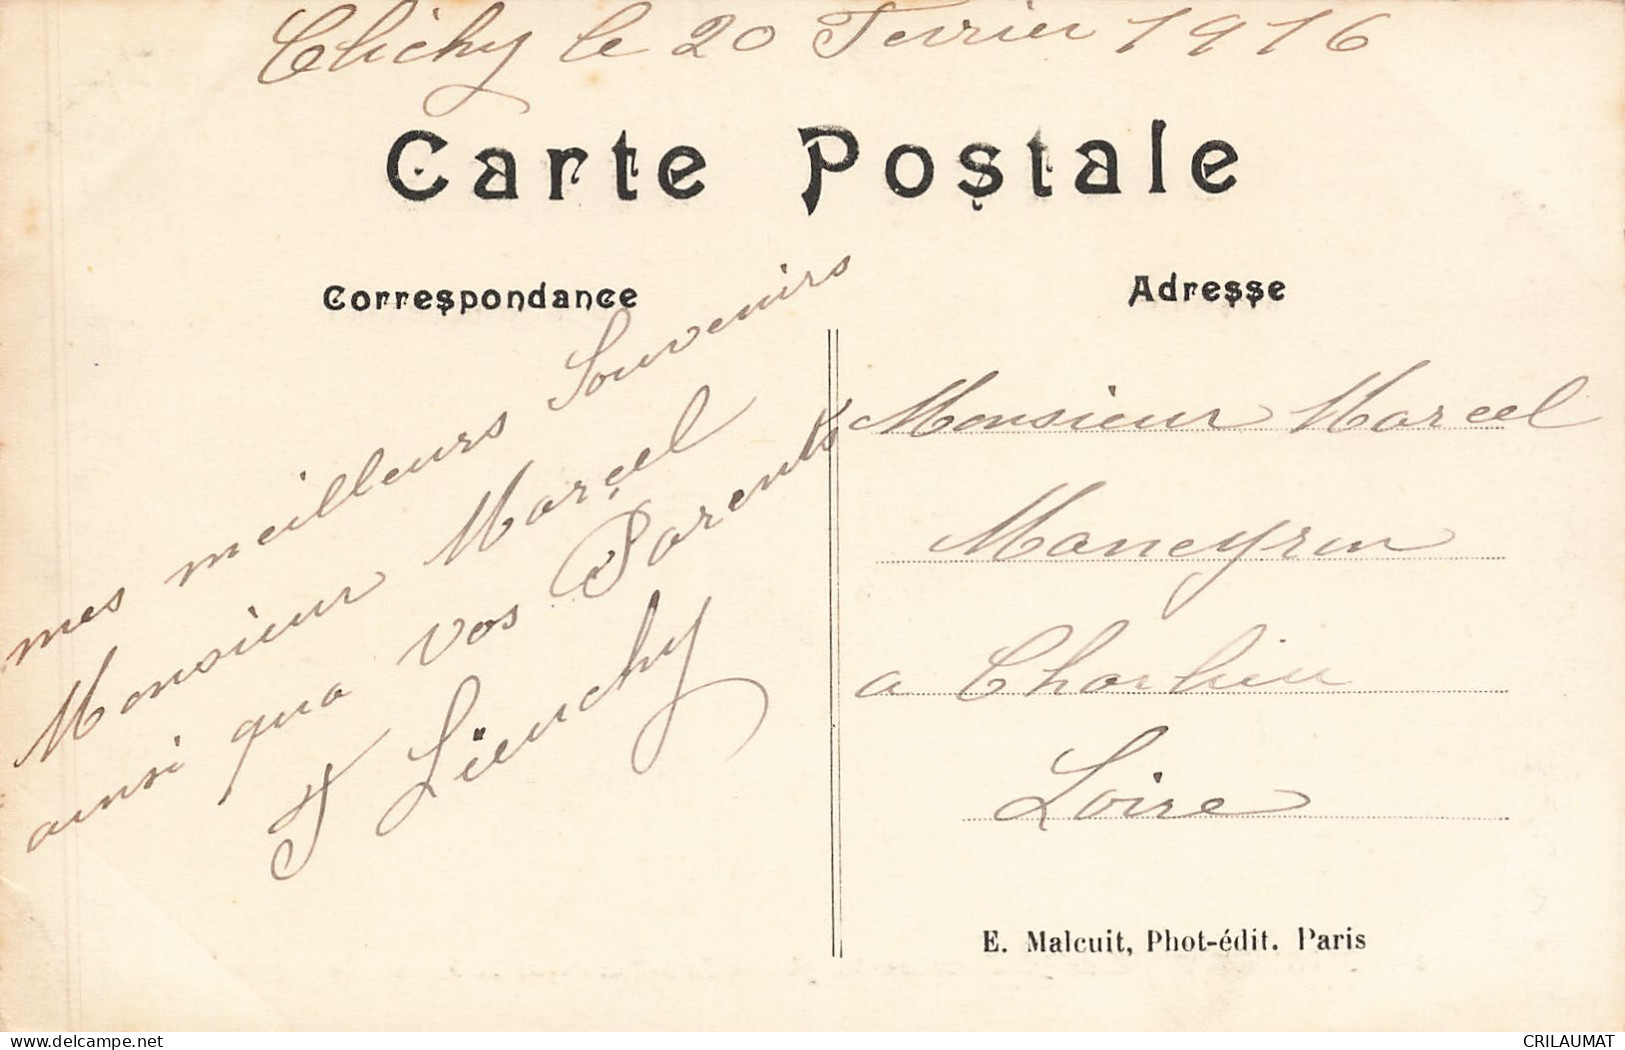 Clichy le 20 Fevrier 1916
Carte Postale
Correspondance
Adresse
mes meilleurs Souvenirs
Monsieur Marcel
ainsi qua vos Parents
Lienchy
Monsieur Marcel
Maneyron
a Charlieu
Loire
E. Malcuit, Phot-édit. Paris
delcampe.net
CRILAUMAT